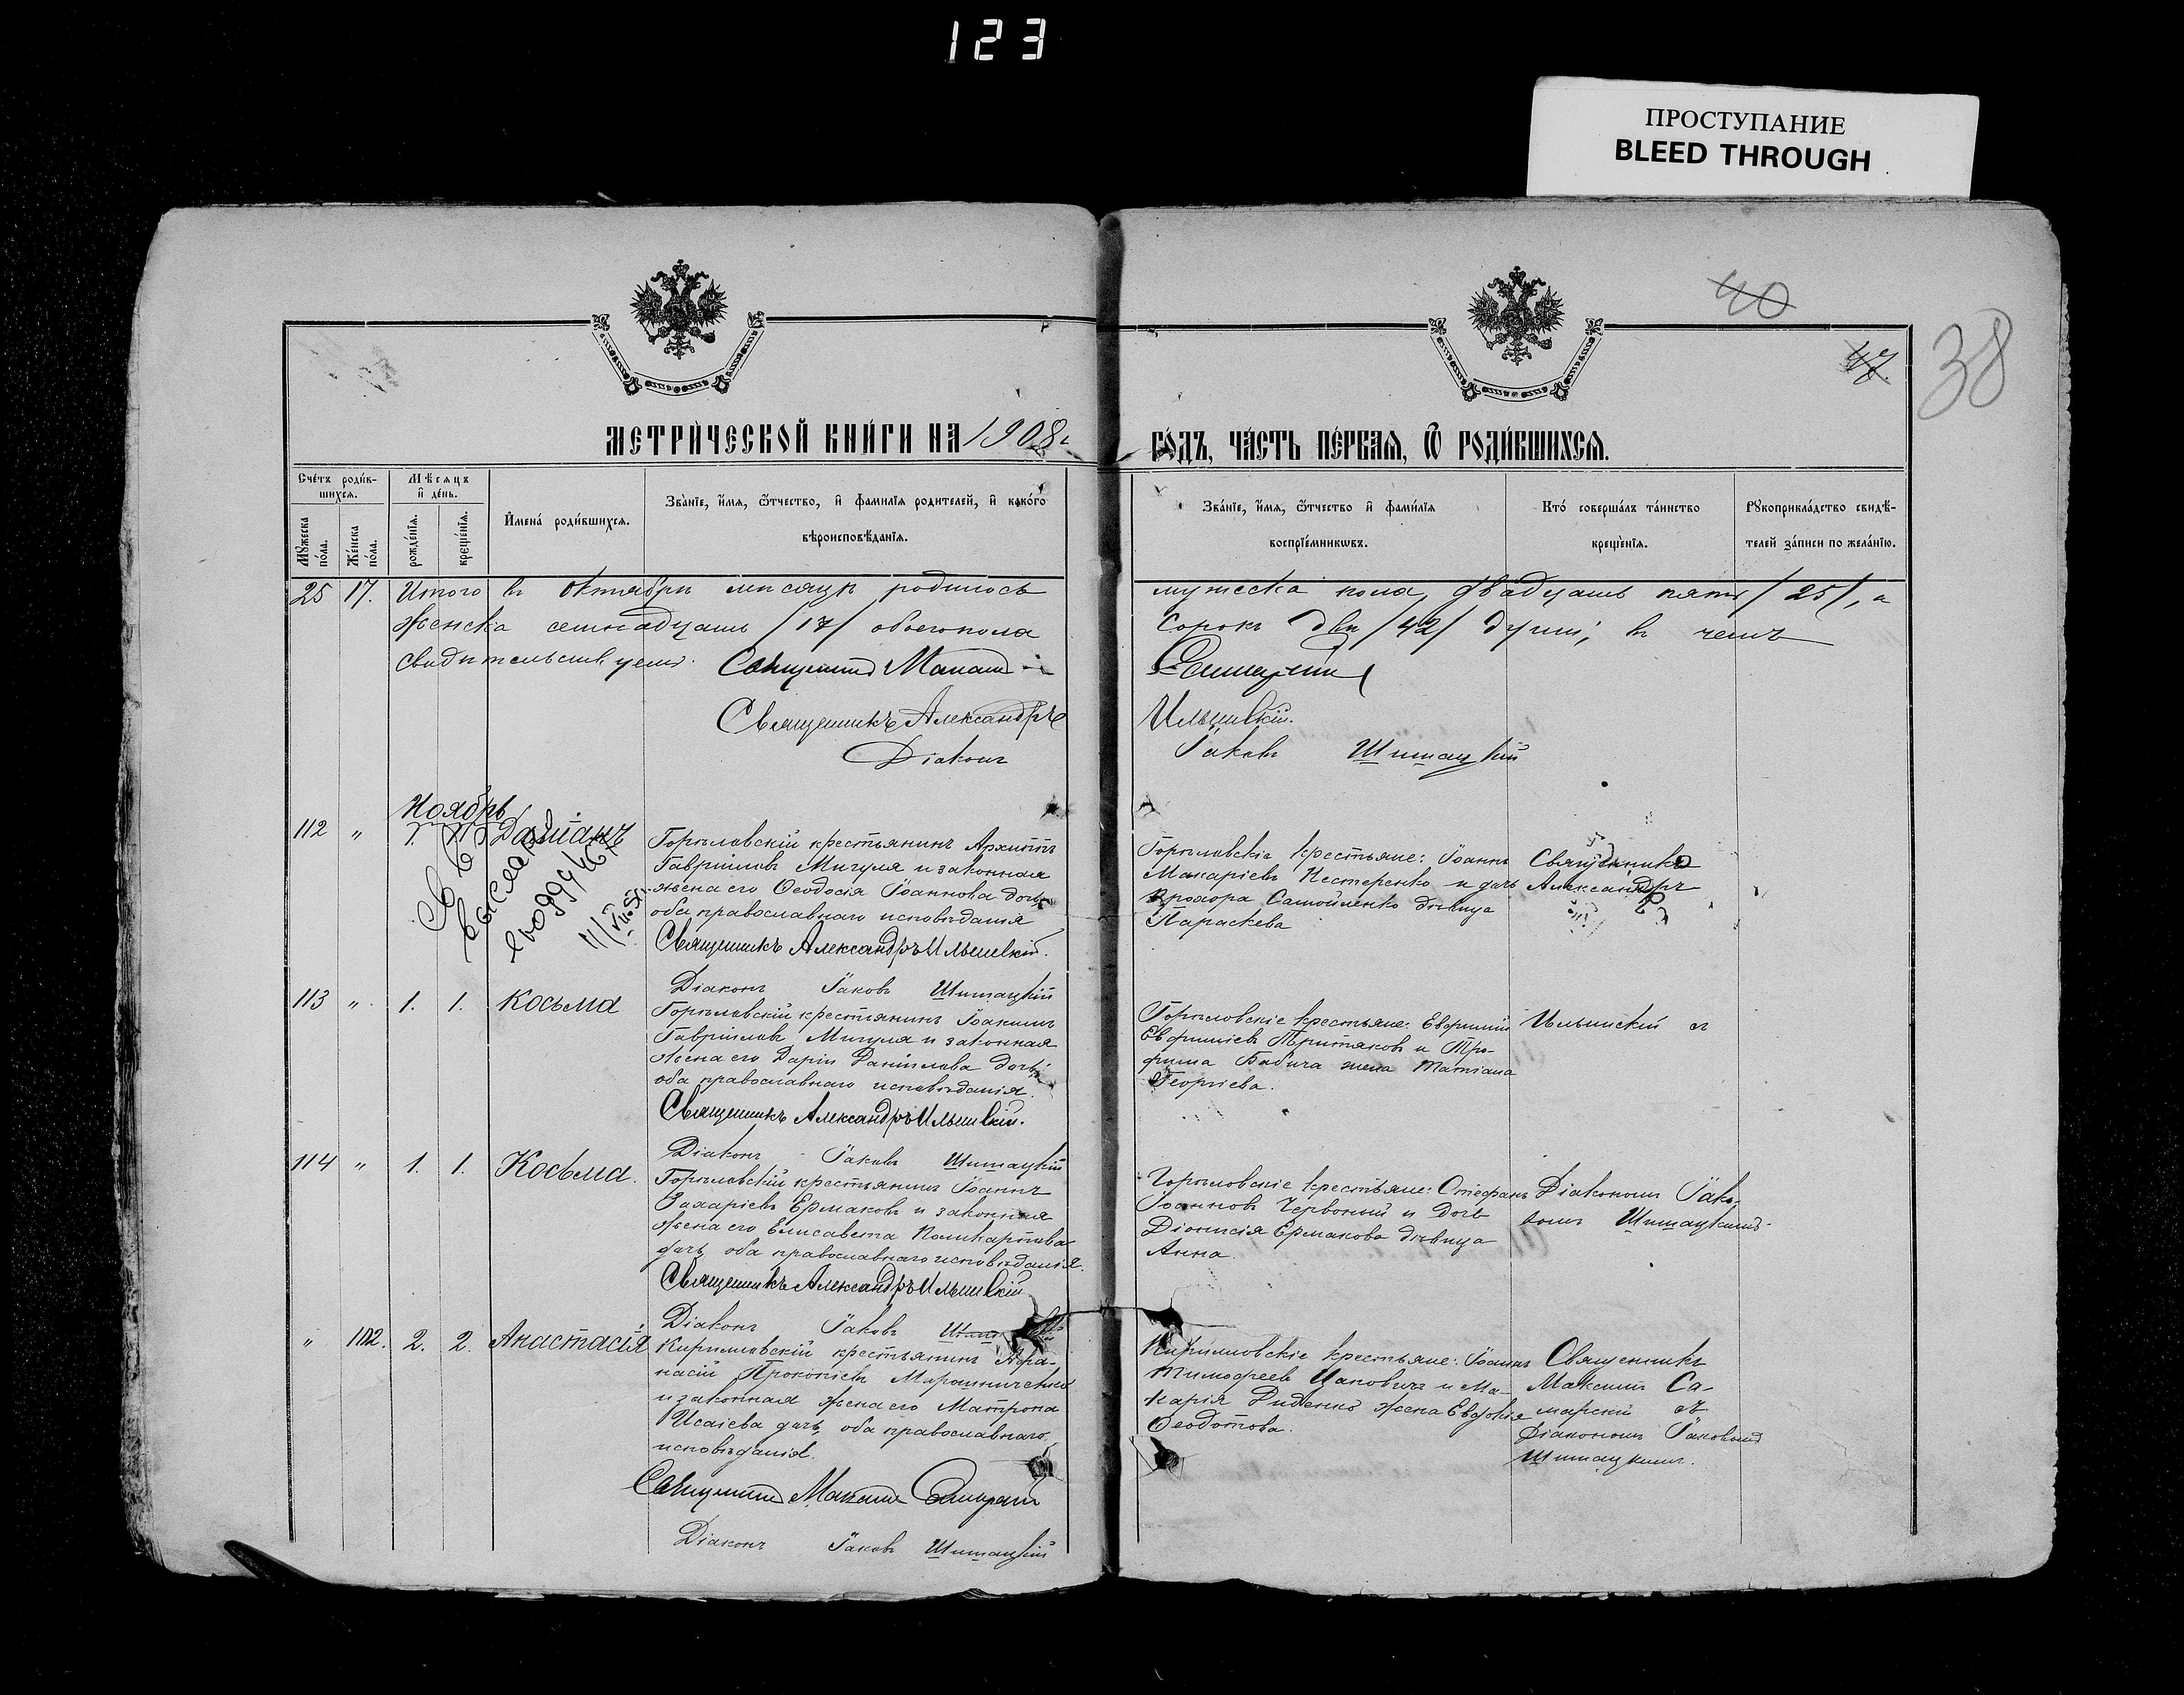 123
ПРОСТУПАНИЕ
BLEED THROUGH
40
47.
38
МЕТРИЧЕСКОЙ КНИГИ НА 1908 г.
ГОДЪ, ЧАСТЬ ПЕРВАЯ, Ѿ РОДИВШИХСЯ.
Счетъ родив-
шихся.
Мѣсяцъ
и день.
Мужеска
пола.
Женска
пола.
рожденія.
крещенія.
Имена родившихся.
Званіе, имя, ѿтчество, и фамилія родителей, и какого
вѣроисповѣданія.
Званіе, имя, ѿтчество и фамилія
воспріемникѡвъ.
Кто совершалъ таинство
крещенія.
Рукоприкладство свидѣ-
телей записи по желанію.
25 17. Итого въ Октябрѣ мѣсяцѣ родилось
женска семнадцать /17/ обоего пола
свидѣтельствуемъ. Священникъ Максимъ
Священникъ Александръ
Діаконъ
мужеска пола двадцать пять /25/, а
сорокъ двѣ /42/ души; въ чемъ
Самарскій
Ильинскій.
Іаковъ Шишацкій
Ноябрь
112 „ 1. 1. Даміанъ
выслано
11/VII 51
Горѣловскій крестьянинъ Архиппъ
Гавріиловъ Мигуля и законная
жена его Ѳеодосія Іоаннова дочь
оба православнаго исповѣданія
Священникъ Александръ Ильинскій.
Діаконъ Іаковъ Шишацкій
Горѣловскіе крестьяне: Іоаннъ
Макаріевъ Нестеренко и дочь
Прохора Самойленко дѣвица
Параскева
Священникъ
Александръ
113 „ 1. 1. Косьма
Горѣловскій крестьянинъ Іоакимъ
Гавріиловъ Мигуля и законная
жена его Дарія Даніилова дочь
оба православнаго исповѣданія.
Священникъ Александръ Ильинскій.
Діаконъ Іаковъ Шишацкій
Горѣловскіе крестьяне: Евфимій
Евфиміевъ Третьяковъ и Тро-
фима Бабича жена Татіана
Георгіева.
Ильинскій съ
114 „ 1. 1. Косьма.
Горѣловскій крестьянинъ Іоаннъ
Захаріевъ Ермаковъ и законная
жена его Елисавета Поликарпова
дочь, оба православнаго исповѣданія.
Священникъ Александръ Ильинскій
Діаконъ Іаковъ
Горѣловскіе крестьяне: Стефанъ
Іоанновъ Червоный и дочь
Діонисія Ермакова дѣвица
Анна.
Діакономъ Іако-
вомъ Шишацкимъ.
„ 102. 2. 2. Анастасія
Кирилловскій крестьянинъ Аѳа-
насій Прокопіевъ Мирошниченко
и законная жена его Матрона
Исаіева дочь, оба православнаго
исповѣданія.
Священникъ Максимъ Самарскій
Діаконъ Іаковъ Шишацкій
Кирилловскіе крестьяне: Іоаннъ
Тимофеевъ Цаковичъ и Ма-
карія Диденко жена Евдокія
Ѳеодотова.
Священникъ
Максимъ Са-
марскій съ
Діакономъ Іаковомъ
Шишацкимъ.